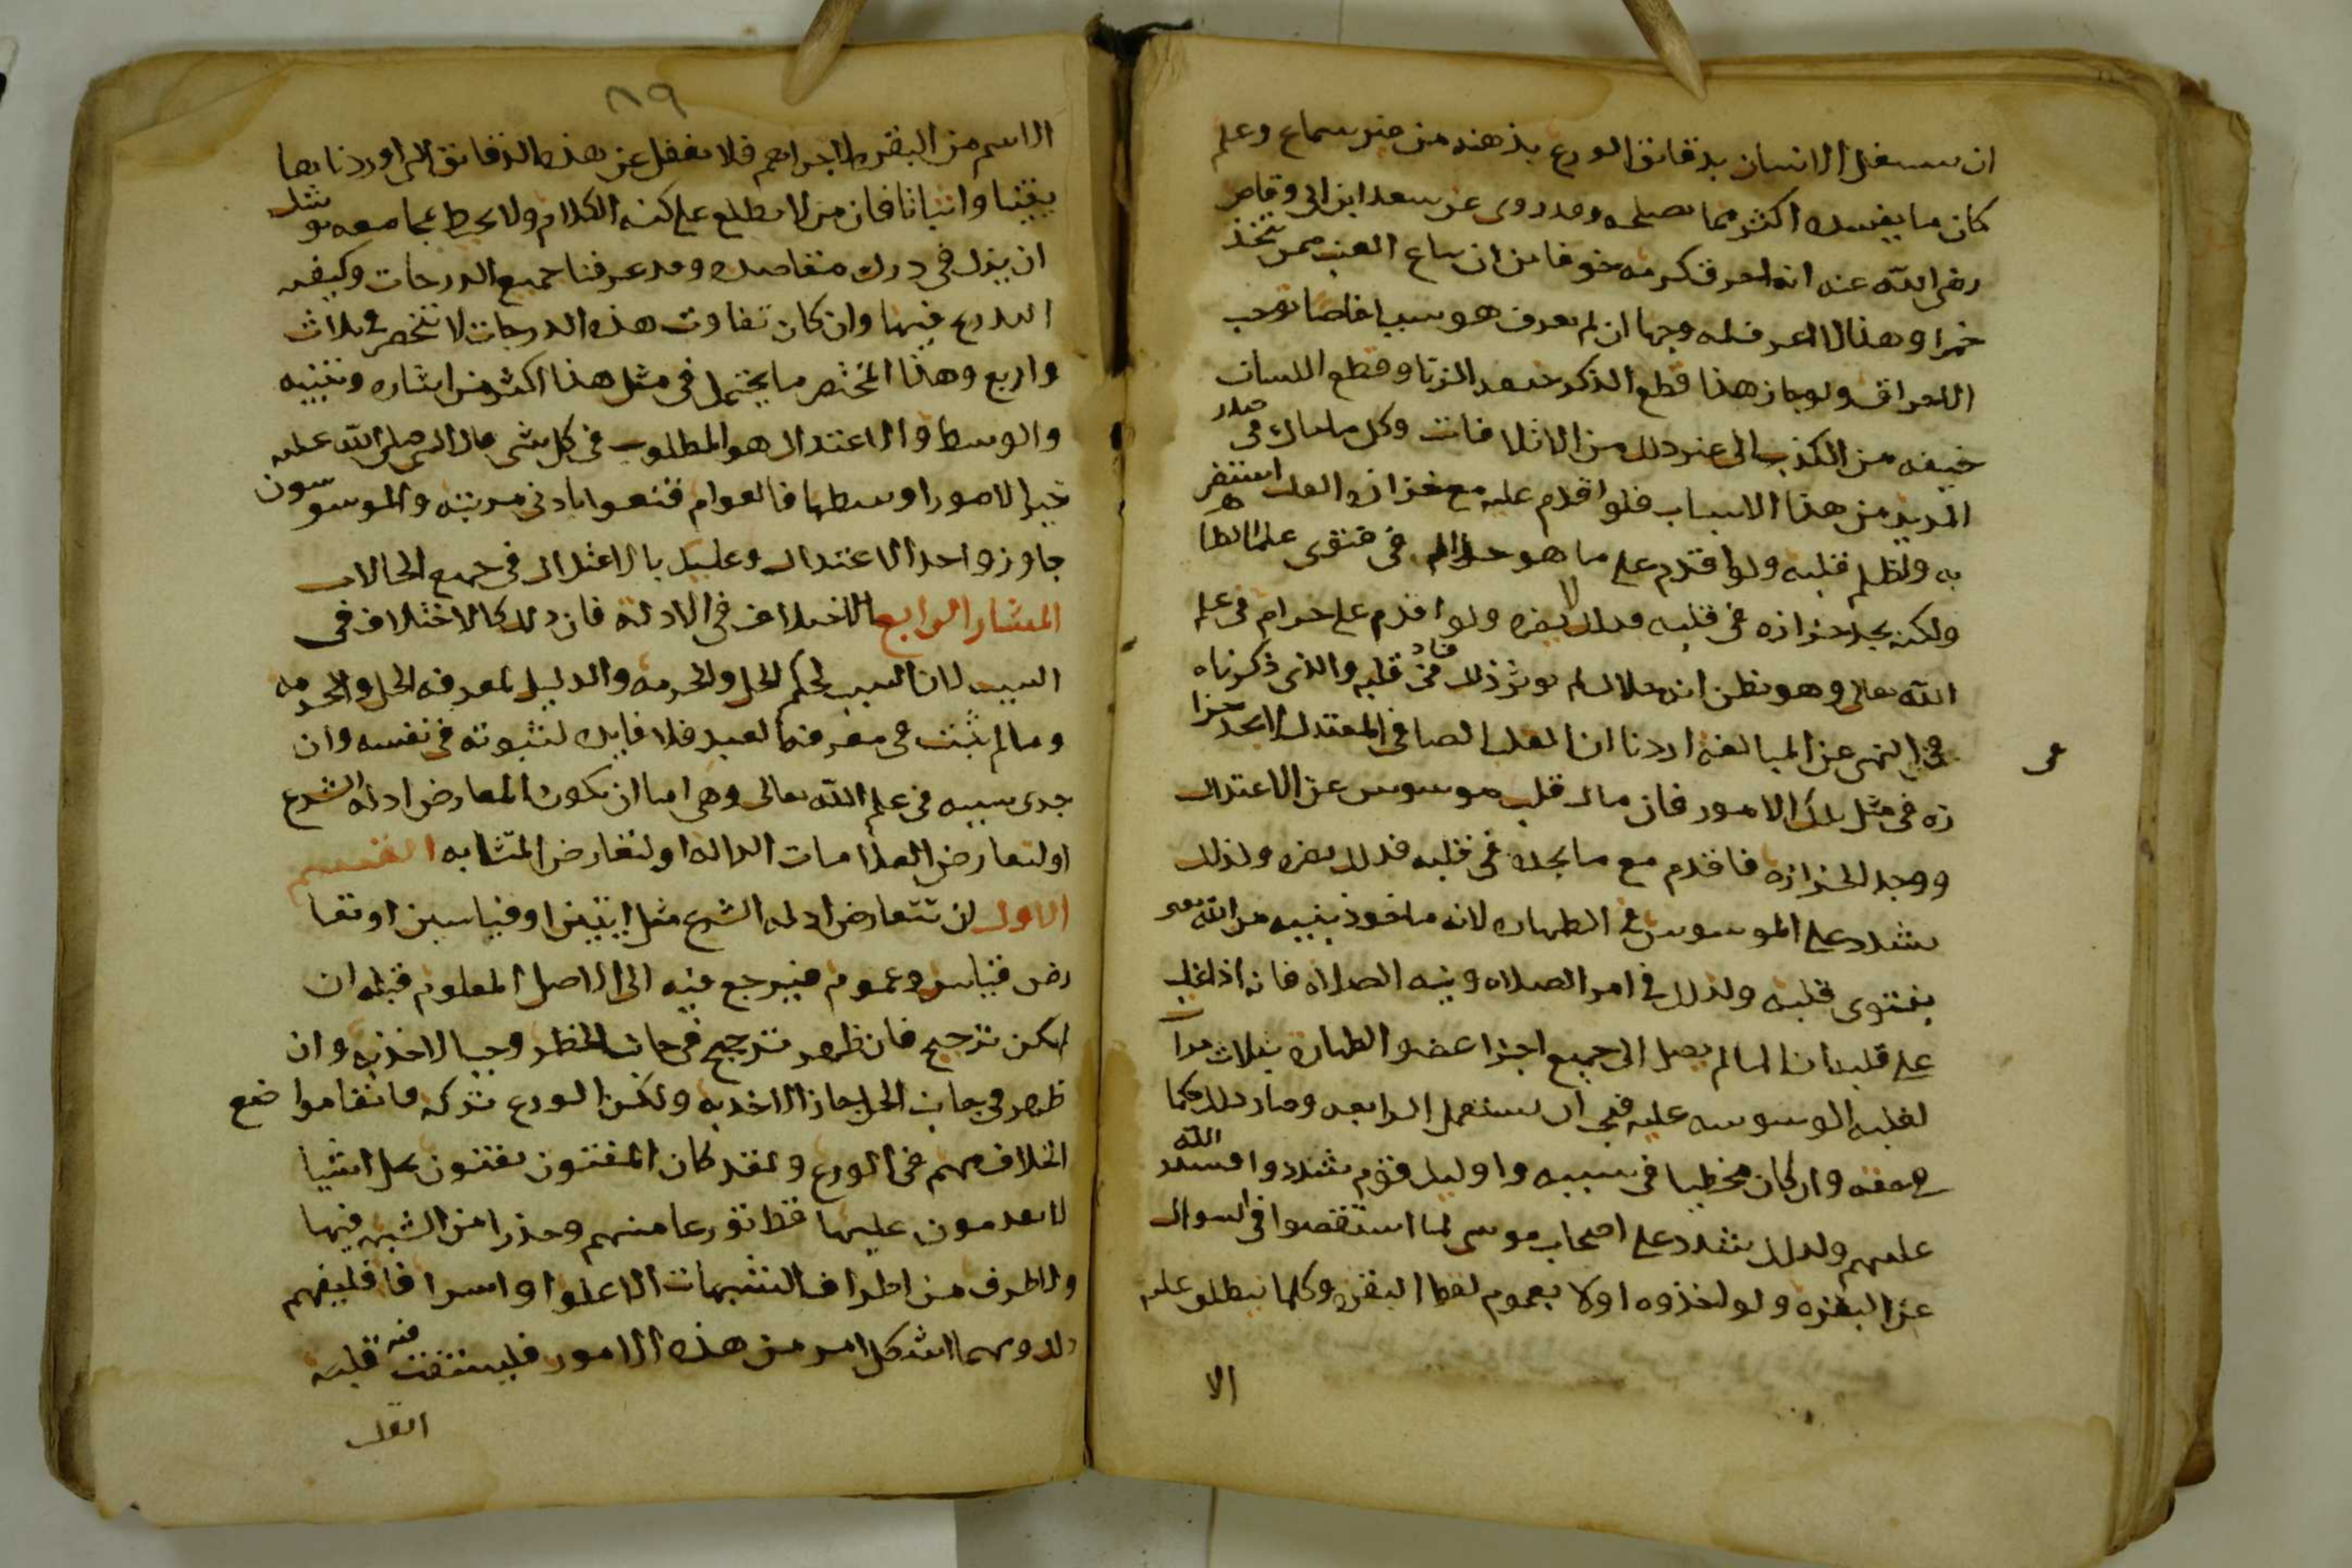 ان يستغل الانسان بدقايق الورع بذهنه من غير سماع وعلم
كان ما يفسده اكثر مما يصلحه وقد روى عن سعد ابن ابي وقاص
رضى الله عنه انه احرق كرمه خوفا من ان يباع العنب ممن يتخذ
خمرا وهذا لا اعرف له وجها ان لم يعرف هو سببا خاصا يوجب
الاحراق ولو جاز هذا قطع الذكر خيفه الزنا وقطع اللسان
خيفه من الكذب الى غير ذلك من الاتلافات وكل ما حاك في صدر
المريد من هذا الاسباب فلو اقدم عليه مع حزازه القلب استضر
به واظلم قلبه ولو اقدم على ما هو حرام في فتوى علما الظاهر
ولكنه يجد حزازه في قلبه فذلك يضره ولو اقدم على حرام في علم
الله تعالى وهو يظن انه حلال لم يوثر ذلك في قساوه قلبه والذى ذكرناه
في النهى عن المبالغه اردنا ان القلب الصافى المعتدل لا يجد حزا
زه في مثل تلك الامور فان مال قلب موسوس عن الاعتدال
ووجد الحزازه فاقدم مع ما يجده في قلبه فذلك يضره ولذلك
يشدد على الموسوس في الطهاره لانه ماخوذ بنيه من الله تعلى
بفتوى قلبه ولذلك في امر الصلاه ونيه الصلاه فانه اذا غلب
على قلبه ان الما لم يصل الى جميع اجزا عضو الطهاره بثلاث مرات
لغلبه الوسوسه عليه فيجب ان يستعمل الرابعه وصار ذلك حكما
في حقه وان كان مخطيا في سببه واوليك قوم شددوا فشدد الله
عليهم ولذلك شدد على اصحاب موسى لما استقصوا في السوال
عن البقره ولو اخذوه اولا بعموم لفظ البقره وكلما ينطلق عليه
الا
٨٩
الاسم من البقره لاجزاهم فلا تغفل عن هذه الدقايق التى اوردناها
يقينا واثباتا فان من لا يطلع على كنه الكلام ولا يحيط بمجامعه يوشك
ان يزل في درك مقاصده وقد عرفنا جميع الدرجات وكيفيه
التدرج فيها وان كان تفاوت هذه الدرجات لا تنحصر في ثلاث
واربع وهذا المختصر ما يحتمل في مثل هذا اكثر من اشاره وتنبيه
والوسط والاعتدال هو المطلوب في كل شى قال النبى صلى الله عليه
خير الامور اوسطها فالعوام قنعوا بادنى مرتبه والموسوسون
جاوزوا حد الاعتدال وعليك بالاعتدال في جميع الحالات
المثار الرابع الاختلاف في الادلة فان ذلك كالاختلاف في
السبب لان السبب لحكم الحل والحرمه والدليل لمعرفه الحل والحرمه
وما لم يثبت في معرفه العبد فلا فايده لثبوته في نفسه وان
جرى سببه في علم الله تعالى وهى اما ان يكون لتعارض ادله الشرع
او لتعارض العلامات الداله او لتعارض المتشابه القسم
الاول ان تتعارض ادله الشرع مثل ايتين او قياسين او تعا
رض قياس وعموم فيرجع فيه الى الاصل المعلوم قبله ان
لم يكن ترجيح فان ظهر ترجيح في جانب الخطر وجب الاخذ به وان
ظهر في جانب الحل جاز الاخذ به ولكن الورع تركه فاتقا مواضع
الخلاف مهم في الورع ولقد كان المفتون يفتون بحل اشيا
لا يقدمون عليها قط تورعا منهم وحذرا من الشبه فيها
والطرف من اطراف الشبهات الا غلوا واسرافا فليفهم
ذلك ومهما اشكل امر من هذه الامور فليستفت فيه قلبه
القلب